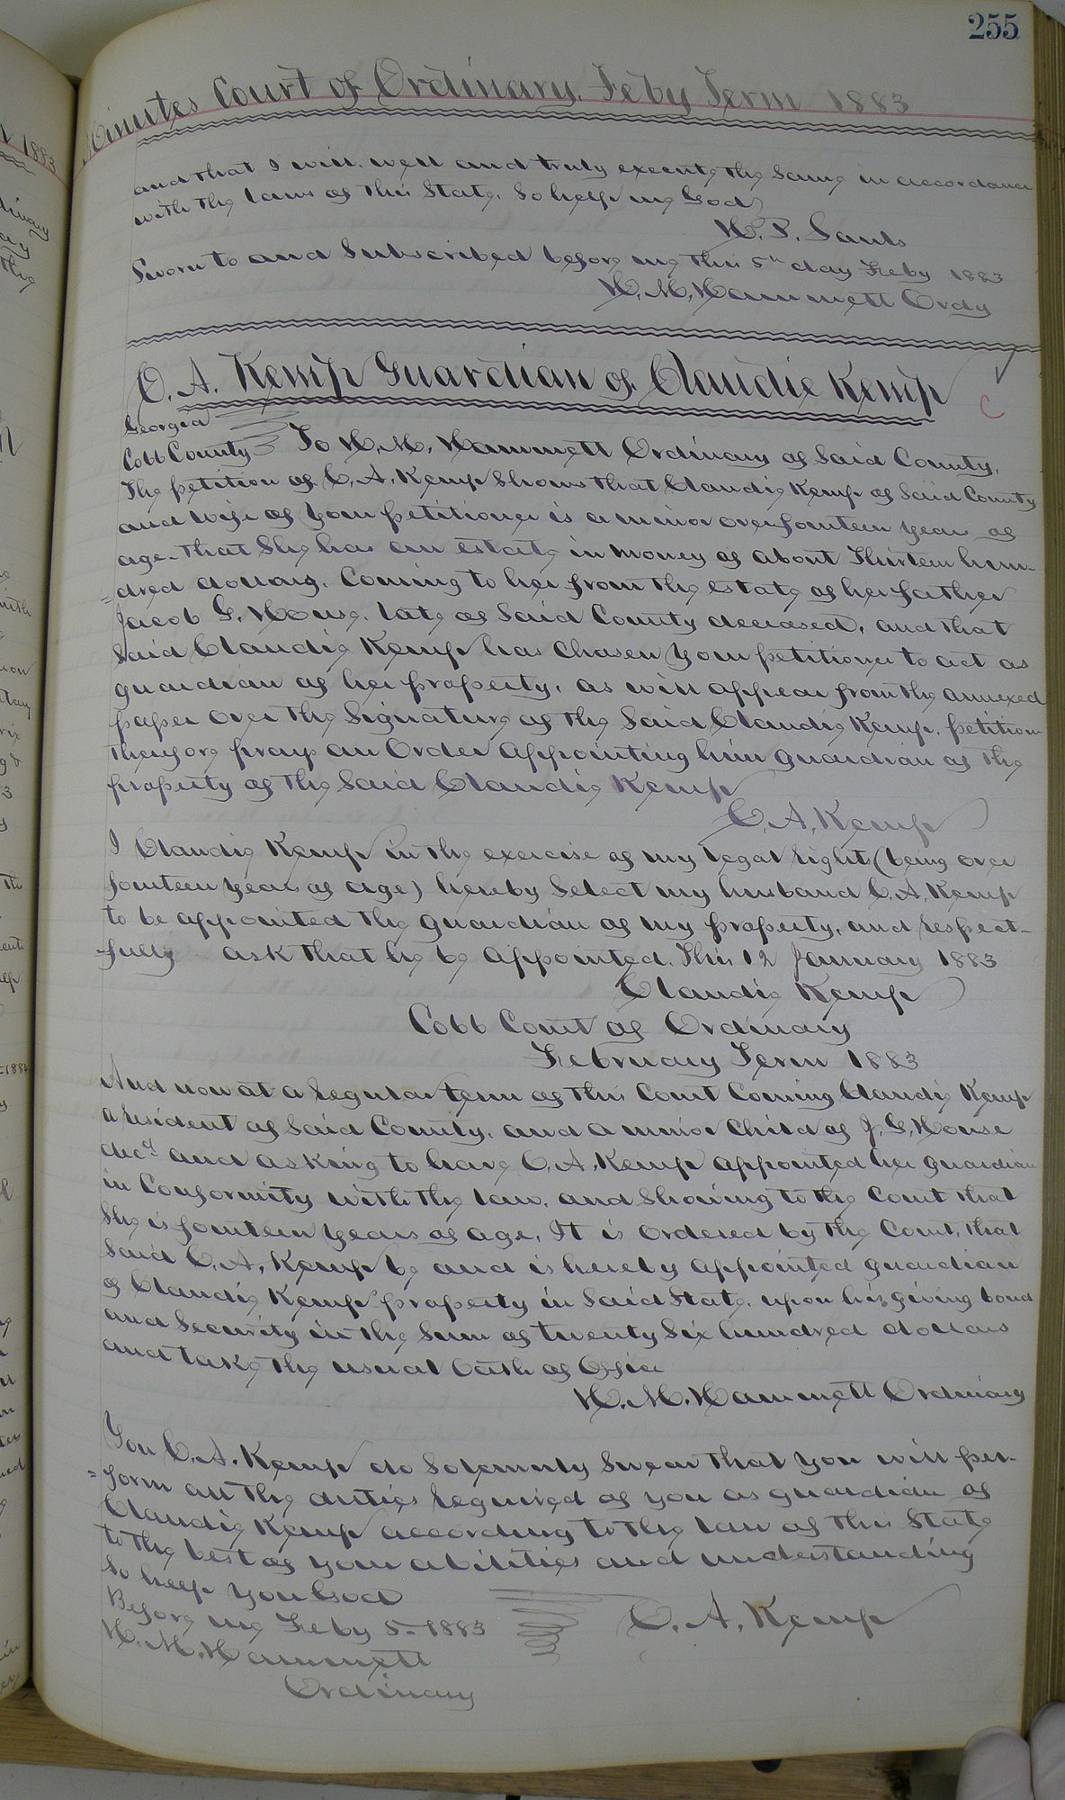 255
Minutes Court of Ordinary, Feby Term 1883
and that I will well and truly execute the same in accordance
with the laws of this State, So help me God
Sworn to and Subscribed before me this 5th day Feby 1883
H. M. Hammett Ordy
C. A. Kemp Guardian of Claudie Kemp
Georgia
Cobb County To H. M. Hammett Ordinary of Said County,
The petition of C. A. Kemp Shows that Claudie Kemp of Said County
and wife of your petitioner is a minor over fourteen years of
age. that She has an estate in money of about Thirteen hun-
=dred dollars, Coming to her from the estate of her father
Jacob G. House, late of Said County deceased, and that
Said Claudie Kemp has Chosen your petitioner to act as
guardian of her property, as will appear from the annexed
paper over the Signature of the Said Claudie Kemp, petition
therefore prays an Order Appointing him guardian of the
property of the Said Claudie Kemp
C. A. Kemp
I Claudie Kemp in the exercise of my legal rights (being over
fourteen years of age) hereby Select my husband C. A. Kemp
to be appointed the guardian of my property, and respect-
-fully ask that he be appointed. This 12 January 1883
Claudie Kemp
Cobb Court of Ordinary
February Term 1883
And now at a regular term of this Court Coming Claudie Kemp
a resident of Said County, and a minor Child of J. G. House
decd and asking to have C. A. Kemp appointed her guardian
in Conformity with the law, and Showing to the Court that
She is fourteen years of age, It is Ordered by the Court, that
Said C. A. Kemp be and is hereby appointed guardian
of Claudie Kemp property in Said State, upon his giving bond
and Security in the Sum of twenty Six hundred dollars
and take the usual Oath of Office
H. M. Hammett Ordinary
You C. A. Kemp do Solemnly Swear that you will per-
=form all the duties required of you as guardian of
Claudie Kemp according to the law of this State
to the best of your abilities and understanding
So help you God
Before me Feby 5-1883 C. A. Kemp
H. M. Hammett
Ordinary